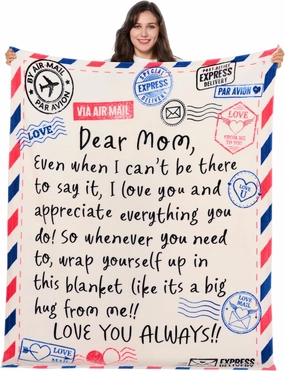 BY AIR MAIL
PAR AVION
SPECIAL
EXPRESS
DELIVERY
EXPRESS
DELIVERY
PAR AVION
VIA AIR MAIL
LOVE
LOVE
FROM ME
TO YOU
Dear Mom,
Even when I can't be there
to say it, I love you and
appreciate everything you
do! So whenever you need
to, wrap yourself up in
this blanket like its a big
hug from me!!
LOVE YOU ALWAYS!!
LOVE
U
LOVE
MAIL
LOVE
MAIL
EXPRESS
DELIVERY